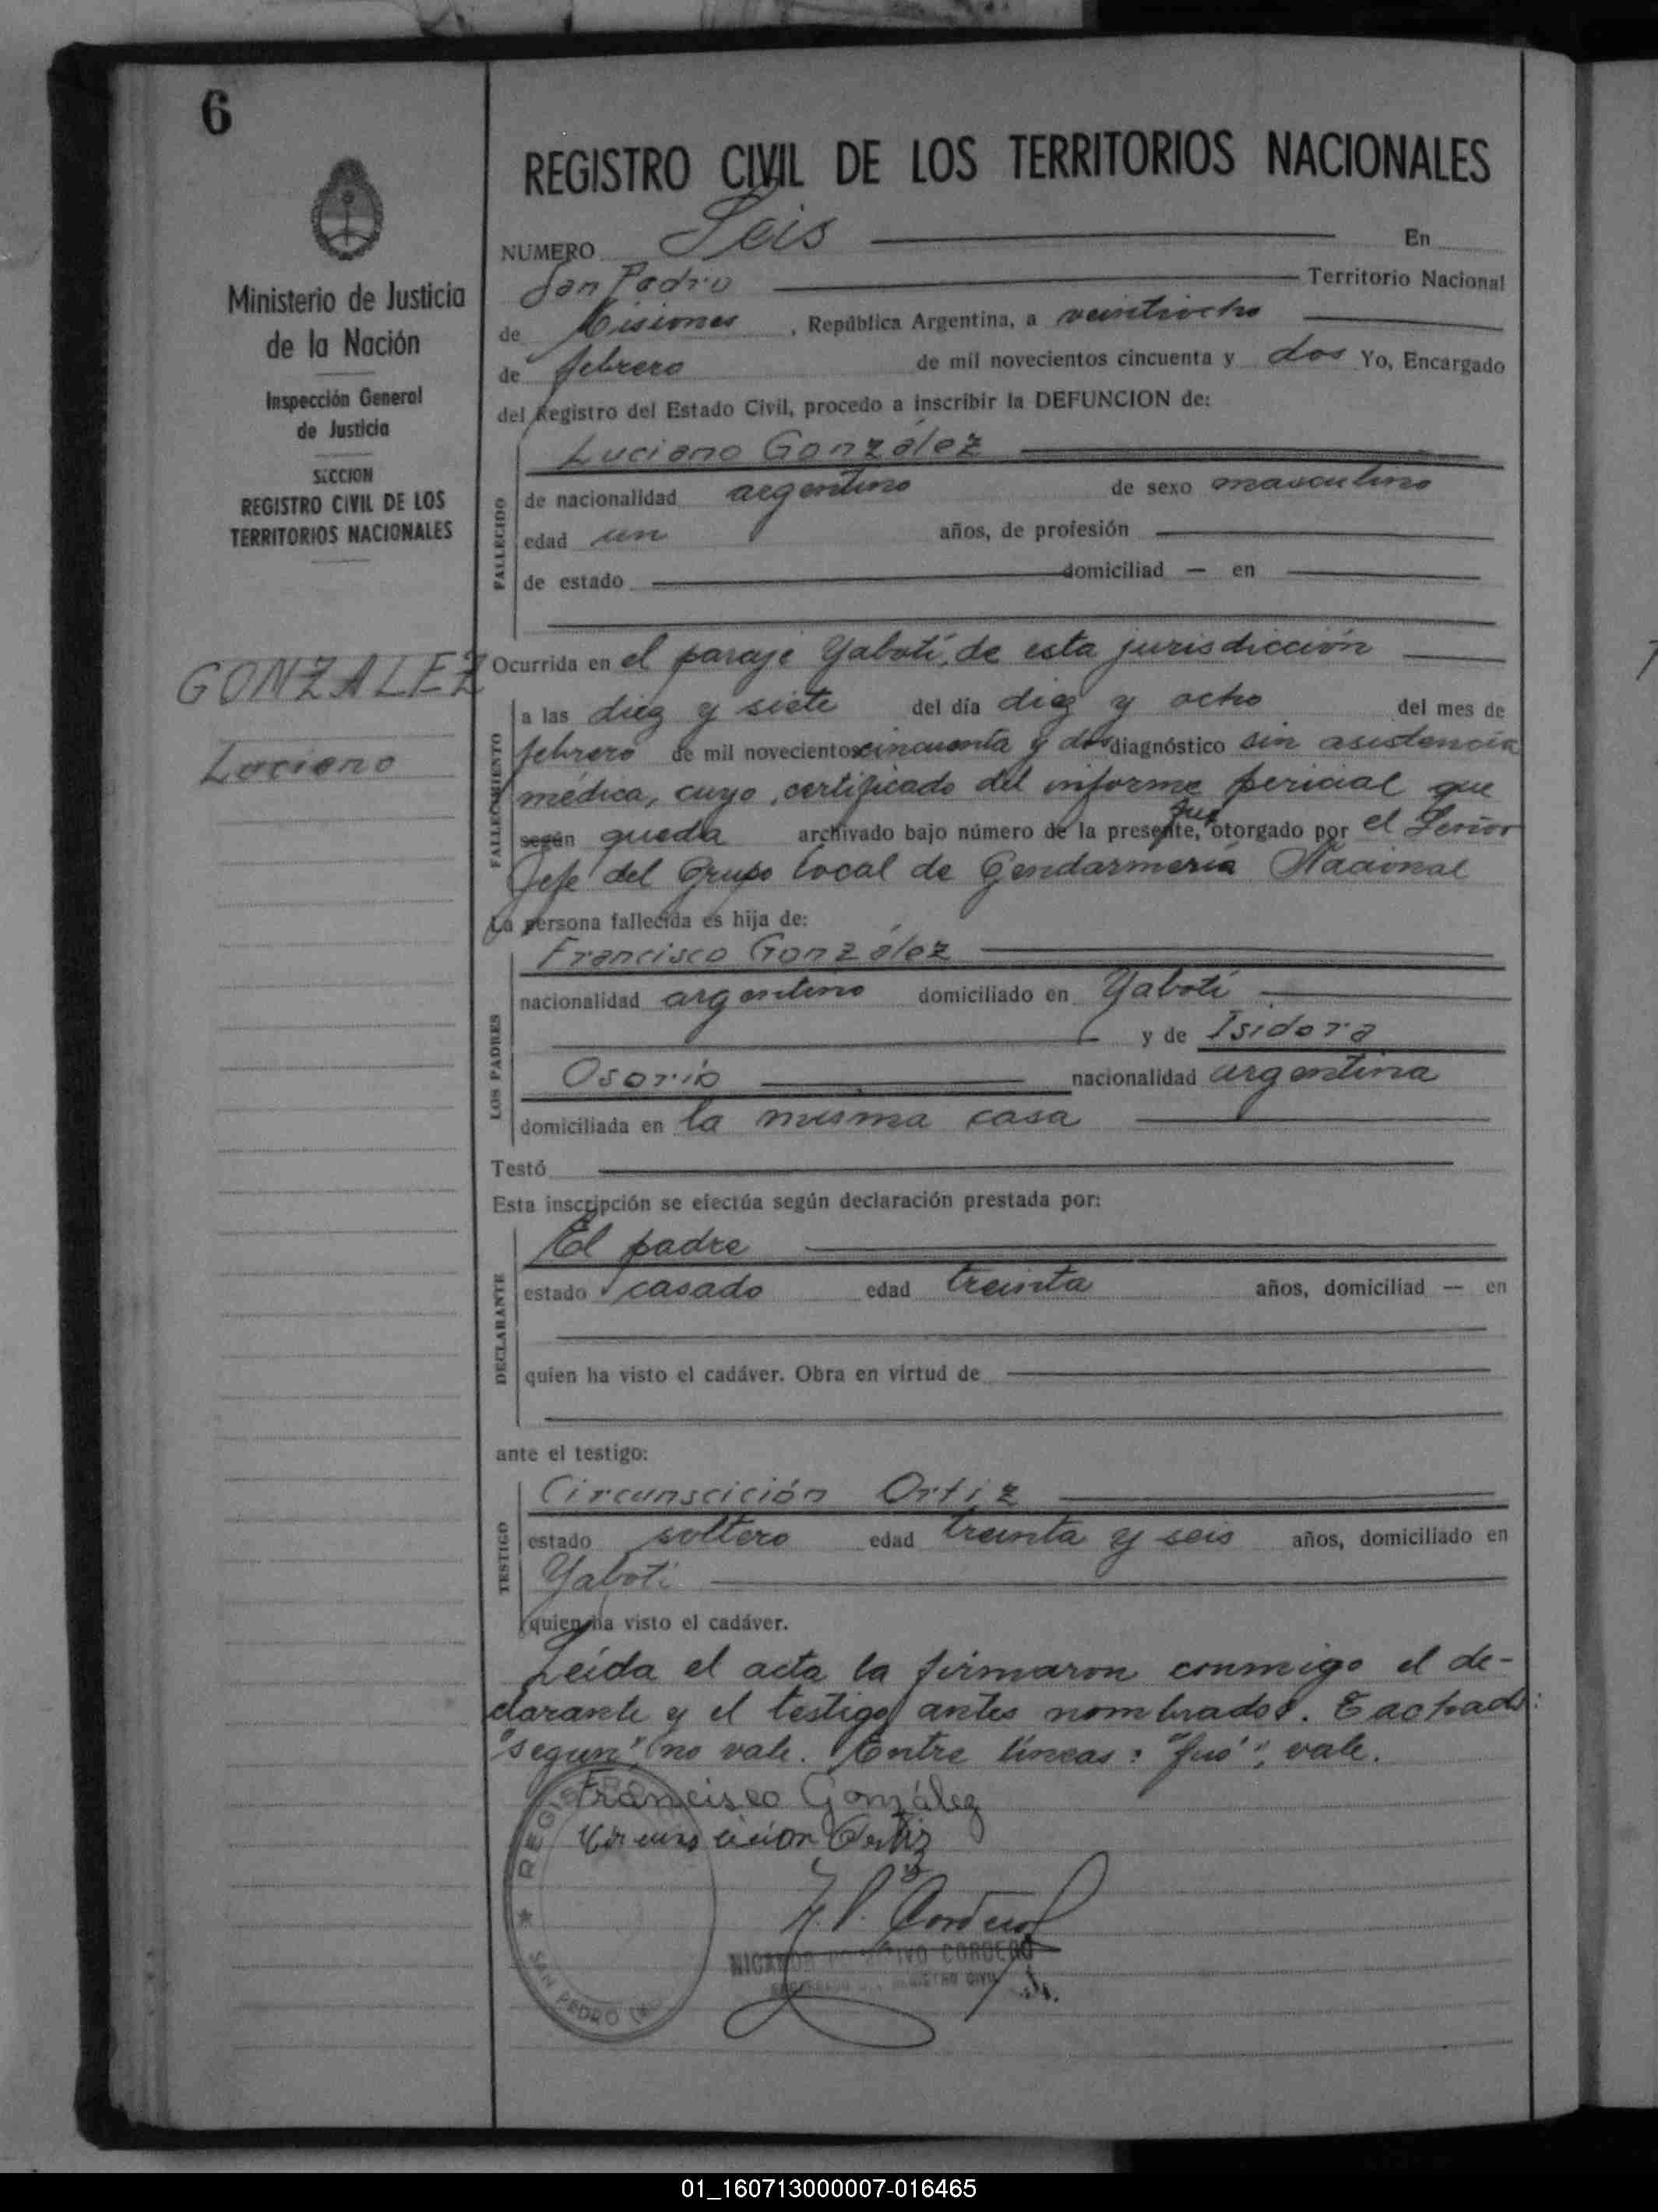 6
Ministerio de Justicia
de la Nación
Inspección General
de Justicia
SECCION
REGISTRO CIVIL DE LOS
TERRITORIOS NACIONALES
GONZALEZ
Luciano
REGISTRO CIVIL DE LOS TERRITORIOS NACIONALES
NUMERO Seis En
San Pedro Territorio Nacional
de Misiones, República Argentina, a veintiocho
de febrero de mil novecientos cincuenta y dos Yo, Encargado
del Registro del Estado Civil, procedo a inscribir la DEFUNCION de:
Luciano González
FALLECIDO
de nacionalidad argentino de sexo masculino
edad un años, de profesión
de estado domiciliad — en
Ocurrida en el paraje Yabotí, de esta jurisdicción
FALLECIMIENTO
a las diez y siete del día diez y ocho del mes de
febrero de mil novecientos cincuenta y dos diagnóstico sin asistencia
médica, cuyo certificado del informe pericial que
según queda archivado bajo número de la presente, fué otorgado por el Señor
Jefe del Grupo local de Gendarmería Nacional
La persona fallecida es hija de:
LOS PADRES
Francisco González
nacionalidad argentino domiciliado en Yabotí
y de Isidora
Osorio nacionalidad argentina
domiciliada en la misma casa
Testó
Esta inscripción se efectúa según declaración prestada por:
DECLARANTE
El padre
estado casado edad treinta años, domiciliad — en
quien ha visto el cadáver. Obra en virtud de
ante el testigo:
TESTIGO
Circunscición Ortiz
estado soltero edad treinta y seis años, domiciliado en
Yabotí
quien ha visto el cadáver.
Leída el acta la firmaron conmigo el de-
clarante y el testigo antes nombrados. Tachado:
"segun", no vale. Entre líneas: "fué", vale.
Francisco González
Circunscicion Ortiz
Cordero
NICANOR CORDERO
REGISTRO CIVIL
REGIS
SAN PEDRO
01_160713000007-016465